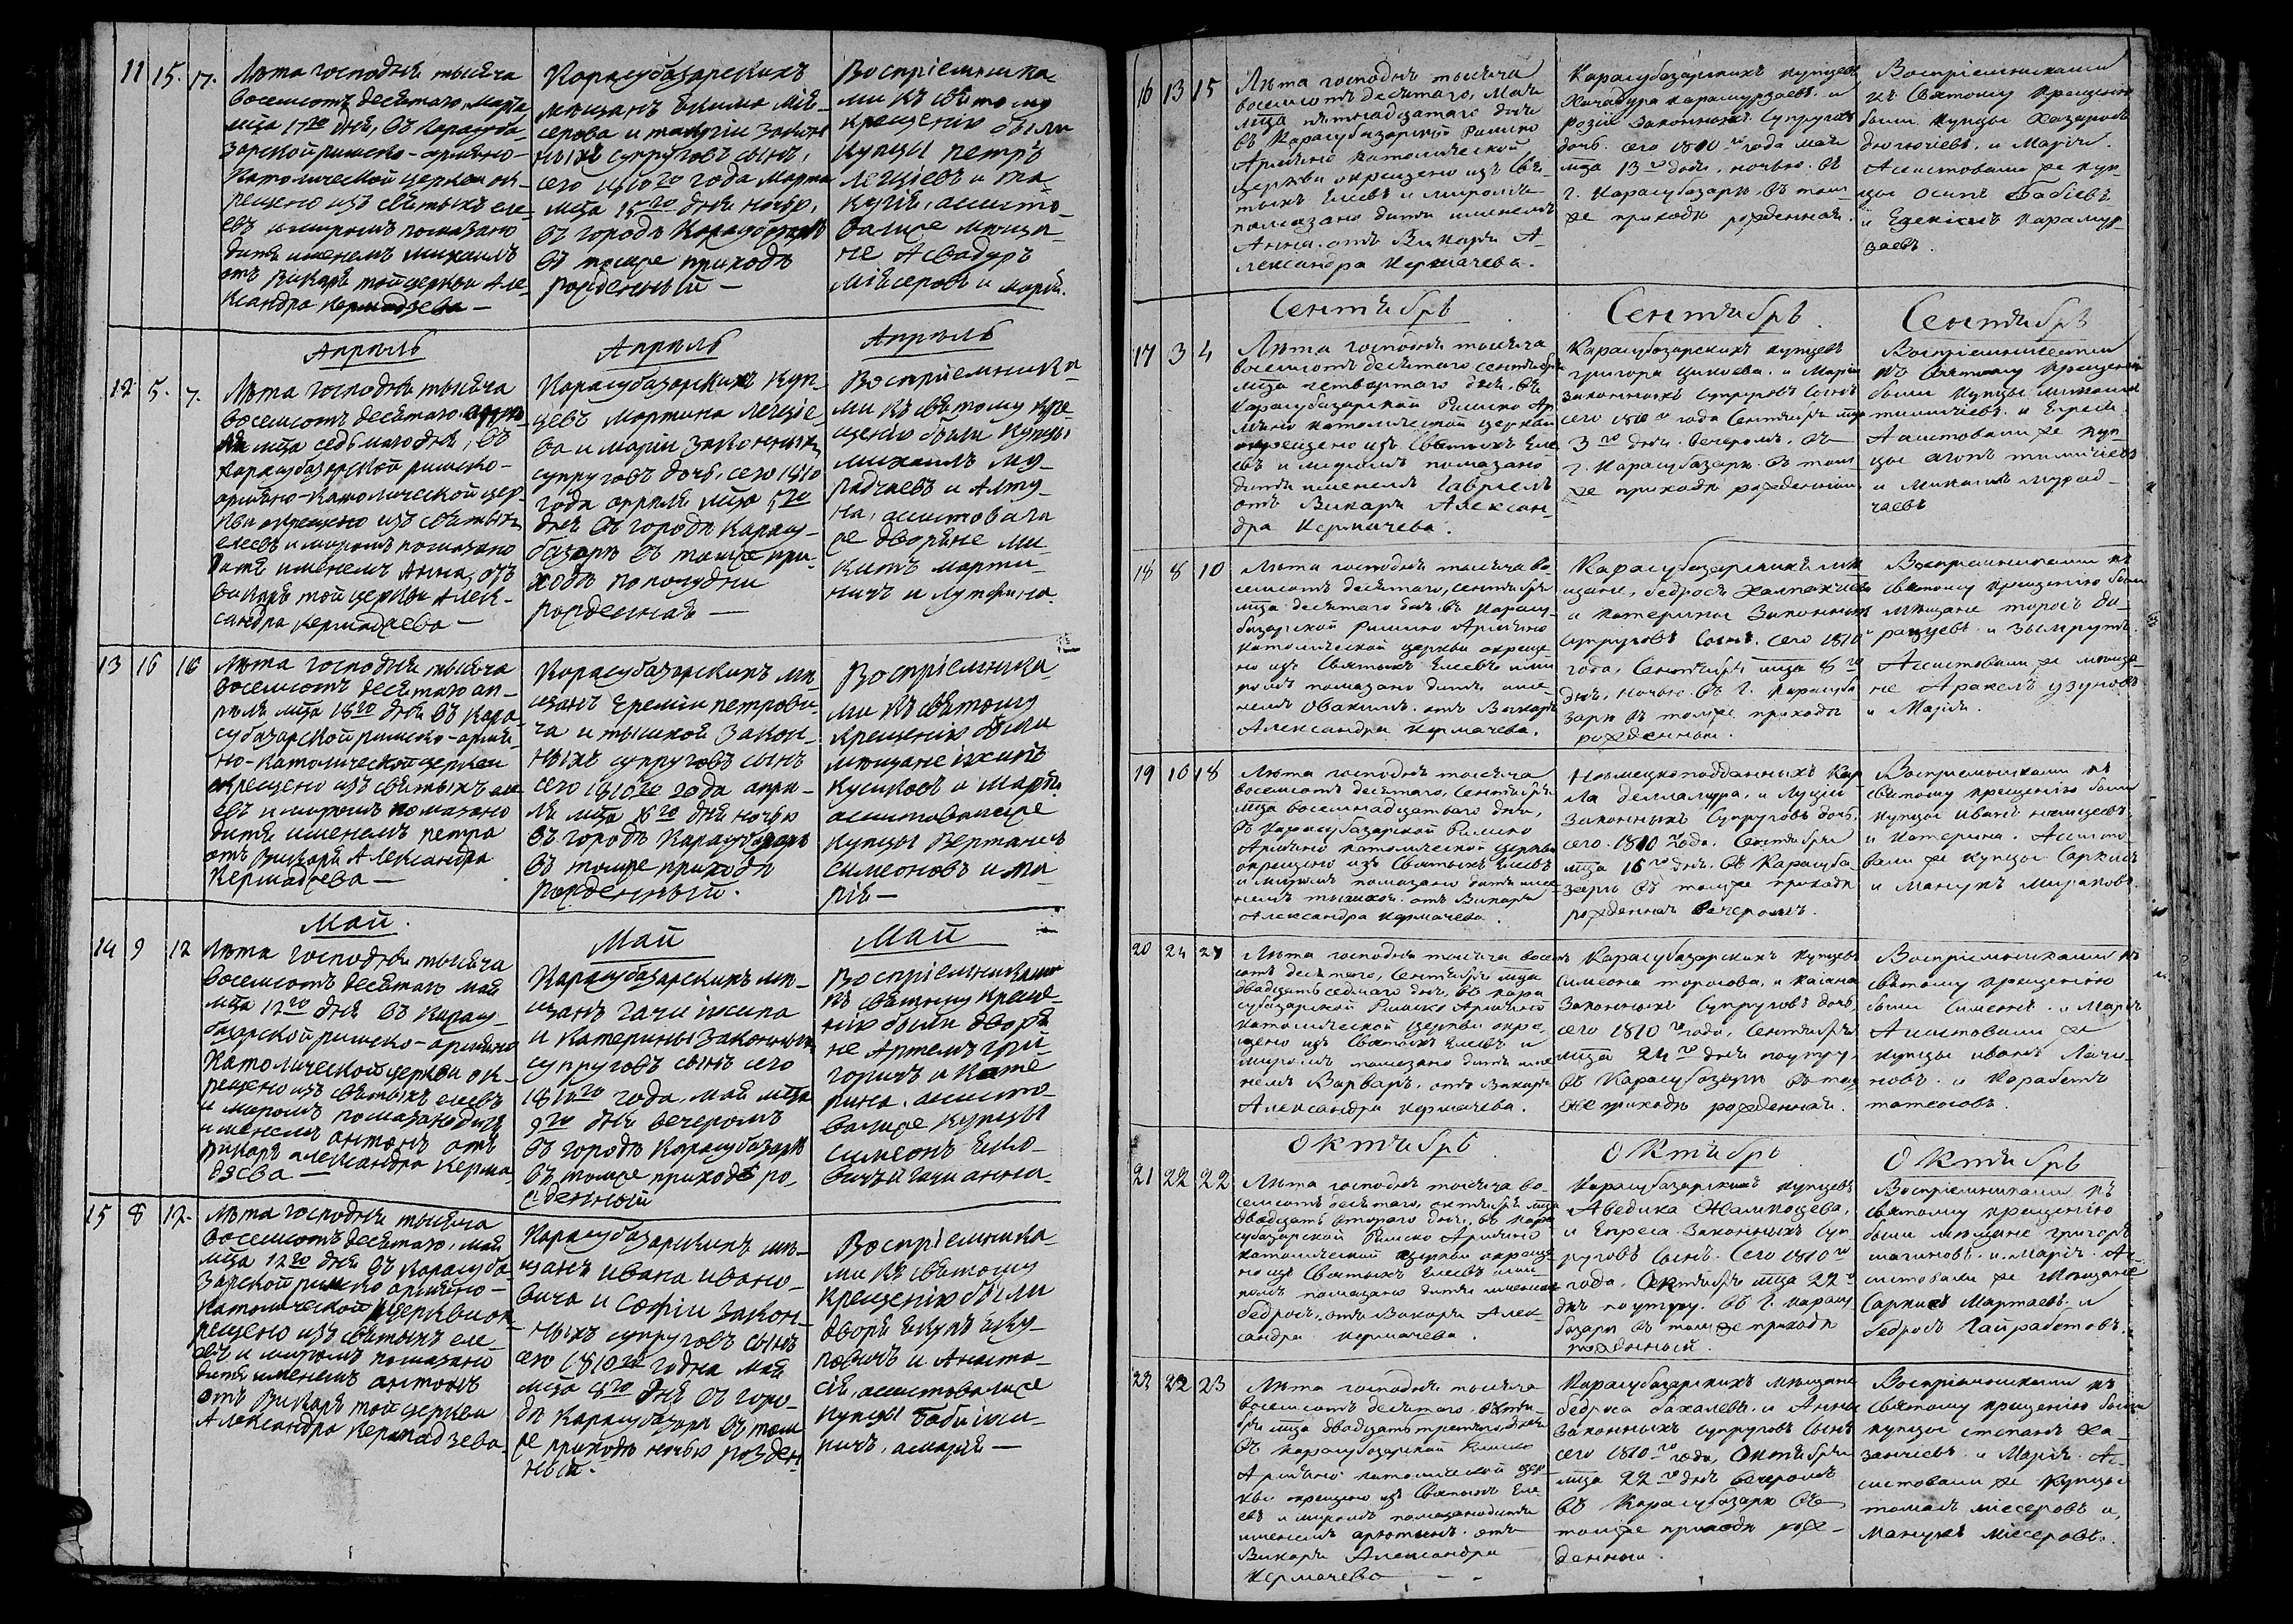 11 15. 17.
Лѣта господня тысяча
восемсотъ десятаго, марта
мца 17го дня, въ Карасуба-
зарской римско-армяно-
Католической церкви ок-
рещено изъ святыхъ еле-
евъ и миромъ помазано
дитя именемъ Михаилъ
отъ Викарія той церкви Але-
ксандра Кермадзева —
Карасубазарскихъ
мещанъ
и законн
ныхъ супруговъ сынъ,
сего 1810го года марта
мца 15го дня ночью,
въ городѣ Карасубазарѣ
въ томже приходѣ
рожденный —
Воспріемника-
ми къ святому
крещенію были
купцы петръ
и
ассисто-
валиже мѣща-
не Асвадуръ
и марія.
Апрѣль
Апрѣль
Апрѣль
12. 5. 7.
Лѣта господня тысяча
восемсотъ десятаго апрѣ-
ля мца седьмаго дня, въ
Карасубазарской римско-
армяно-Католической цер-
кви окрещено изъ святыхъ
елеевъ и миромъ помазано
дитя именемъ Анна, отъ
викарія той церкви Алек-
сандра Кермадзева —
Карасубазарскихъ куп-
цевъ Мартина
ва и маріи законныхъ
супруговъ дочь, сего 1810
года апрѣля мца 5го
дня въ городѣ Карасу-
базарѣ въ томже при-
ходѣ пополудни
рожденная —
Воспріемника-
ми къ святому кре-
щенію были купцы
михаилъ му-
радчаевъ и Алту-
на, ассистовали
же дворяне
13 16 18
Лѣта господня тысяча
восемсотъ десятаго ап-
рѣля мца 18го дня въ Кара-
субазарской римско-армя-
но-Католической церкви
окрещено изъ святыхъ еле-
евъ и миромъ помазано
дитя именемъ петра
отъ Викарія Александра
Кермадзева —
Карасубазарскихъ мѣ-
щанъ Еремія петрови-
ча и закон-
ныхъ супруговъ сынъ
сего 1810го года апрѣ-
ля мца 16го дня ночью
въ городѣ Карасубазарѣ
въ томже приходѣ
рожденный.
Воспріемника-
ми къ святому
крещенію были
мѣщане
и Марія
ассистовалиже
купцы Вертанесъ
симеоновъ и ма-
рія —
Май.
Май
Май
14 9 12
Лѣта господня тысяча
восемсотъ десятаго май
мца 12го дня въ Карасу-
базарской римско-армяно
Католической церкви ок-
рещено изъ святыхъ елеевъ
и миромъ помазано дитя
именемъ антонъ отъ
викарія александра Керма-
дзева —
Карасубазарскихъ мѣ-
щанъ
и Катерины законныхъ
супруговъ сынъ сего
1810го года, май мца
9го дня вечеромъ
въ городѣ Карасубазарѣ
въ томже приходѣ ро-
жденный
Воспріемниками
къ святому креще-
нію были дворя-
не Артемъ гри-
горичъ и Кате
рина, ассисто-
валиже купцы
симеонъ
анна.
15 8 12.
Лѣта господня тысяча
восемсотъ десятаго, май
мца 12го дня въ Карасуба-
зарской римско армяно-
Католической церкви ок-
рещено изъ святыхъ еле-
евъ и миромъ помазано
дитя именемъ антонъ
отъ Викарія той церкви
Александра Кермадзева
Карасубазарскихъ мѣ-
щанъ ивана ивано-
вича и Софіи закон-
ныхъ супруговъ сынъ
сего 1810го года май
мца 8го дня въ горо-
дѣ Карасубазарѣ въ том
же приходѣ ночью рожден
ный.
Воспріемника-
ми къ святому
крещенію были
дворя
и Анаста-
сія, ассистовалиже
купцы
и марія —
16 13 15
Лѣта господня тысяча
восемсотъ десятаго, Мая
мца пятнадцатаго дня
въ Карасубазарской Римско
Армяно католической
церкви окрещено изъ Свя-
тыхъ Елеевъ и миромъ
помазано дитя именемъ
Анна. отъ Викарія А-
лександра Кермачева.
Карасубазарскихъ купцевъ
Хачадура Карамурзаевъ и
розіи законныхъ Супруговъ
дочь. сего 1810го года мая
мца 13го дня. ночью. въ
г. Карасубазарѣ. въ том-
же приходѣ рожденная.
Воспріемниками
къ Святому крещенію
были купцы Хазаровъ
и Марія.
Ассистовали же куп-
цы осипъ
и Езекіилъ Карамур-
заевъ.
Сентябрь
Сентябрь
Сентябрь
17 3 4
Лѣта господня тысяча
восемсотъ десятаго сентября
мца четвертаго дня. въ
Карасубазарской Римско Ар-
мяно католической церкви
окрещено изъ Святыхъ Еле
евъ и миромъ помазано
дитя именемъ Гавріелъ
отъ Викарія Алексан-
дра Кермачева.
Карасубазарскихъ купцевъ
григора и Маріи
законныхъ супруговъ Сынъ
сего 1810го года Сентября мца
3го дня. вечеромъ. въ
г. Карасубазарѣ. въ том-
же приходѣ рожденный
Воспріемниками
къ Святому крещенію
были купцы михаилъ
и
Ассистовали же куп-
цы агопъ
и михаилъ мурад-
чаевъ
18 8 10
Лѣта господня тысяча во
семсотъ десятаго, сентября
мца десятаго дня. въ Карасу-
базарской Римско Армяно
католической церкви окреще-
но изъ Святыхъ Елеевъ и ми
ромъ помазано дитя име-
немъ Овакимъ. отъ Викарія
Александра Кермачева.
Карасубазарскихъ мѣ
щане, бедросъ
и катерины Законныхъ
супруговъ Сынъ. сего 1810го
года, Сентября мца 8го
дня, ночью. въ г. Карасуба
зарѣ въ томже приходѣ
рожденный.
Воспріемниками къ
святому крещенію были
мѣщане торосъ
и
Ассистовали же мѣща-
не Аракелъ узуновъ
и Марія.
19 16 18
Лѣта господня тысяча
восемсотъ десятаго, Сентября
мца восемнадцатаго дня,
въ Карасубазарской Римско
Армяно католической церкви
окрещено изъ Святыхъ Елеевъ
и миромъ помазано дитя име-
немъ отъ Викарія
Александра Кермачева.
Немецкоподданныхъ Кар-
ла и Луціи
законныхъ Супруговъ дочь.
сего 1810го года. Сентября
мца 16го дня. въ Карасуба-
зарѣ въ томже приходѣ
рожденная вечеромъ.
Воспріемниками къ
святому крещенію были
купцы иванъ
и Катерина. Ассисто
вали же купцы Саркисъ
и Манукъ Мираковъ.
20 24 27
Лѣта господня тысяча восем
сотъ десятаго, Сентября мца
двадцать седмаго дня, въ кара
субазарской Римско Армяно
католической церкви окре-
щено изъ Святыхъ Елеевъ и
миромъ помазано дитя име
немъ Варваръ. отъ Викарія
Александра Кермачева.
Карасубазарскихъ купцевъ
Симеона торосова, и
законныхъ Супруговъ дочь,
сего 1810го года, Сентября
мца 24го дня поутру.
въ Карасубазарѣ въ том
же приходѣ рожденная.
Воспріемниками къ
святому крещенію
были Симеонъ. и Марія
Ассистовали же
купцы иванъ
новъ. и Карабетъ
татеосовъ.
Октябрь
Октябрь
Октябрь
21 22 22
Лѣта господня тысяча во-
семсотъ десятаго, октября мца
двадцать втораго дня, въ кара
субазарской Римско Армяно
католической церкви окреще
но изъ Святыхъ Елеевъ и ми-
ромъ помазано дитя именемъ
бедросъ, отъ Викарія Алек-
сандра Кермачева.
Карасубазарскихъ купцевъ
Аведика
и Епреса Законныхъ Суп-
руговъ Сынъ. Сего 1810го
года, Октября мца 22го
дня поутру. въ г. Карасу
базарѣ въ томже приходѣ
рожденный.
Воспріемниками къ
святому крещенію
были мѣщане григоръ
и Марія. Ас-
систовали же Мѣщане
Саркисъ Мартаевъ. и
бедросъ
22 22 23
Лѣта господня тысяча
восемсотъ десятаго, октя-
бря мца двадцать третяго дня
въ Карасубазарской Римско
Армяно католической цер-
кви окрещено изъ Святыхъ Еле
евъ и миромъ помазано дитя
именемъ арютинъ. отъ
Викарія Александра
Кермачева
Карасубазарскихъ мѣщане
бедроса бахалевъ. и Анны
законныхъ супруговъ Сынъ
сего 1810го года, Октября
мца 22го дня вечеромъ
въ Карасубазарѣ въ
томже приходѣ рож-
денный.
Воспріемниками къ
святому крещенію были
купцы степанъ ха-
занчіевъ. и Марія. Ас-
систовали же купцы
томасъ міесеровъ и,
Манукъ Міесеровъ.